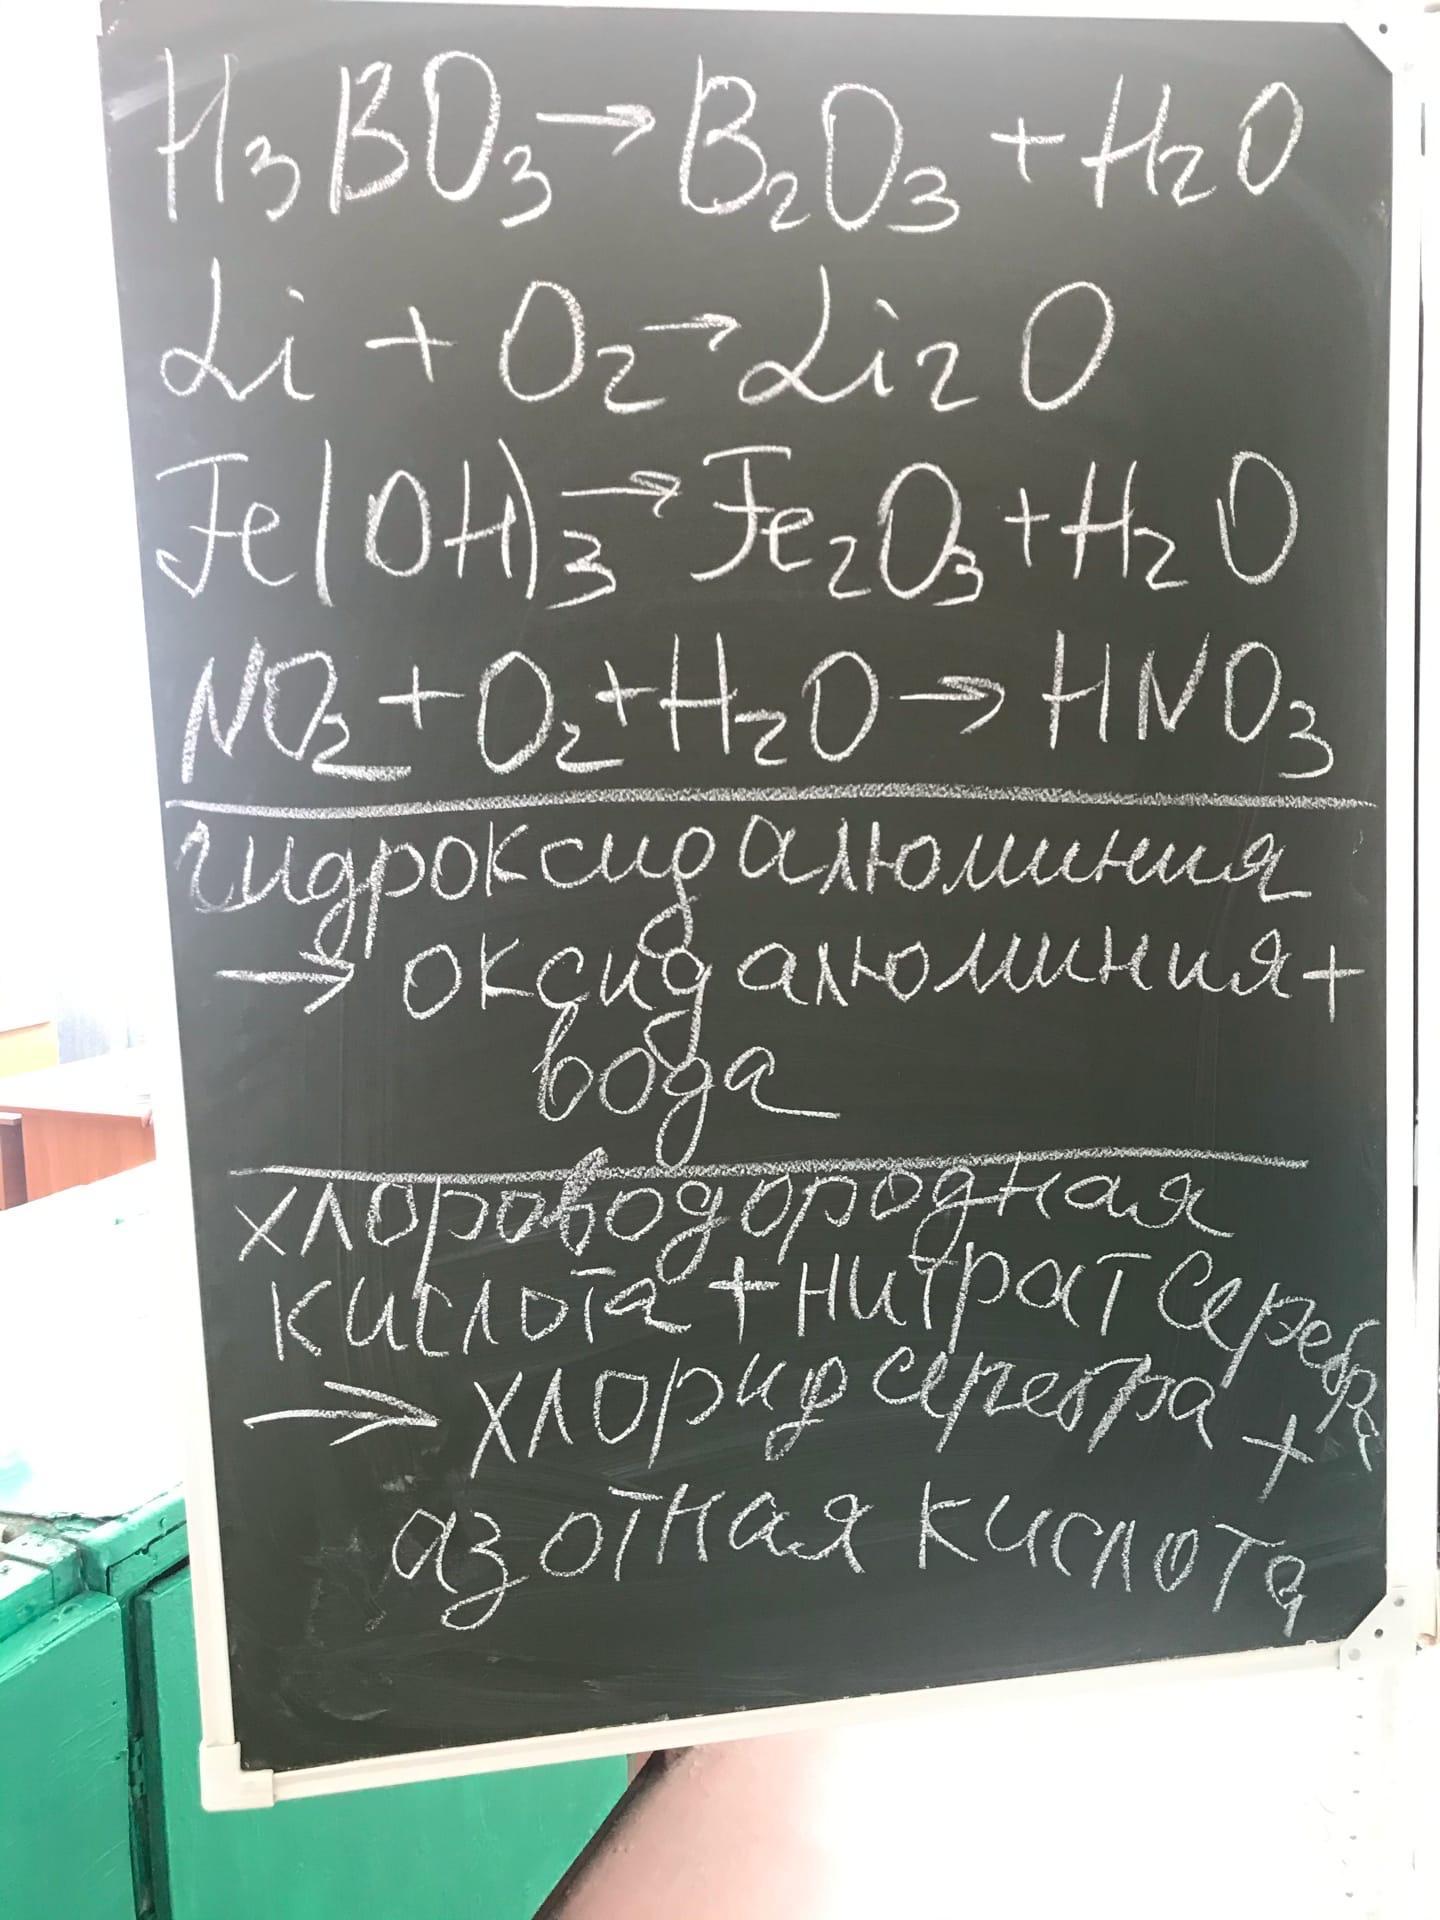 H₃BO₃ → B₂O₃ + H₂O
Li + O₂ → Li₂O
Fe(OH)₃ → Fe₂O₃ + H₂O
NO₂ + O₂ + H₂O → HNO₃
гидроксид алюминия
→ оксид алюминия +
вода
хлороводородная
кислота + нитрат серебра
→ хлорид серебра +
азотная кислота